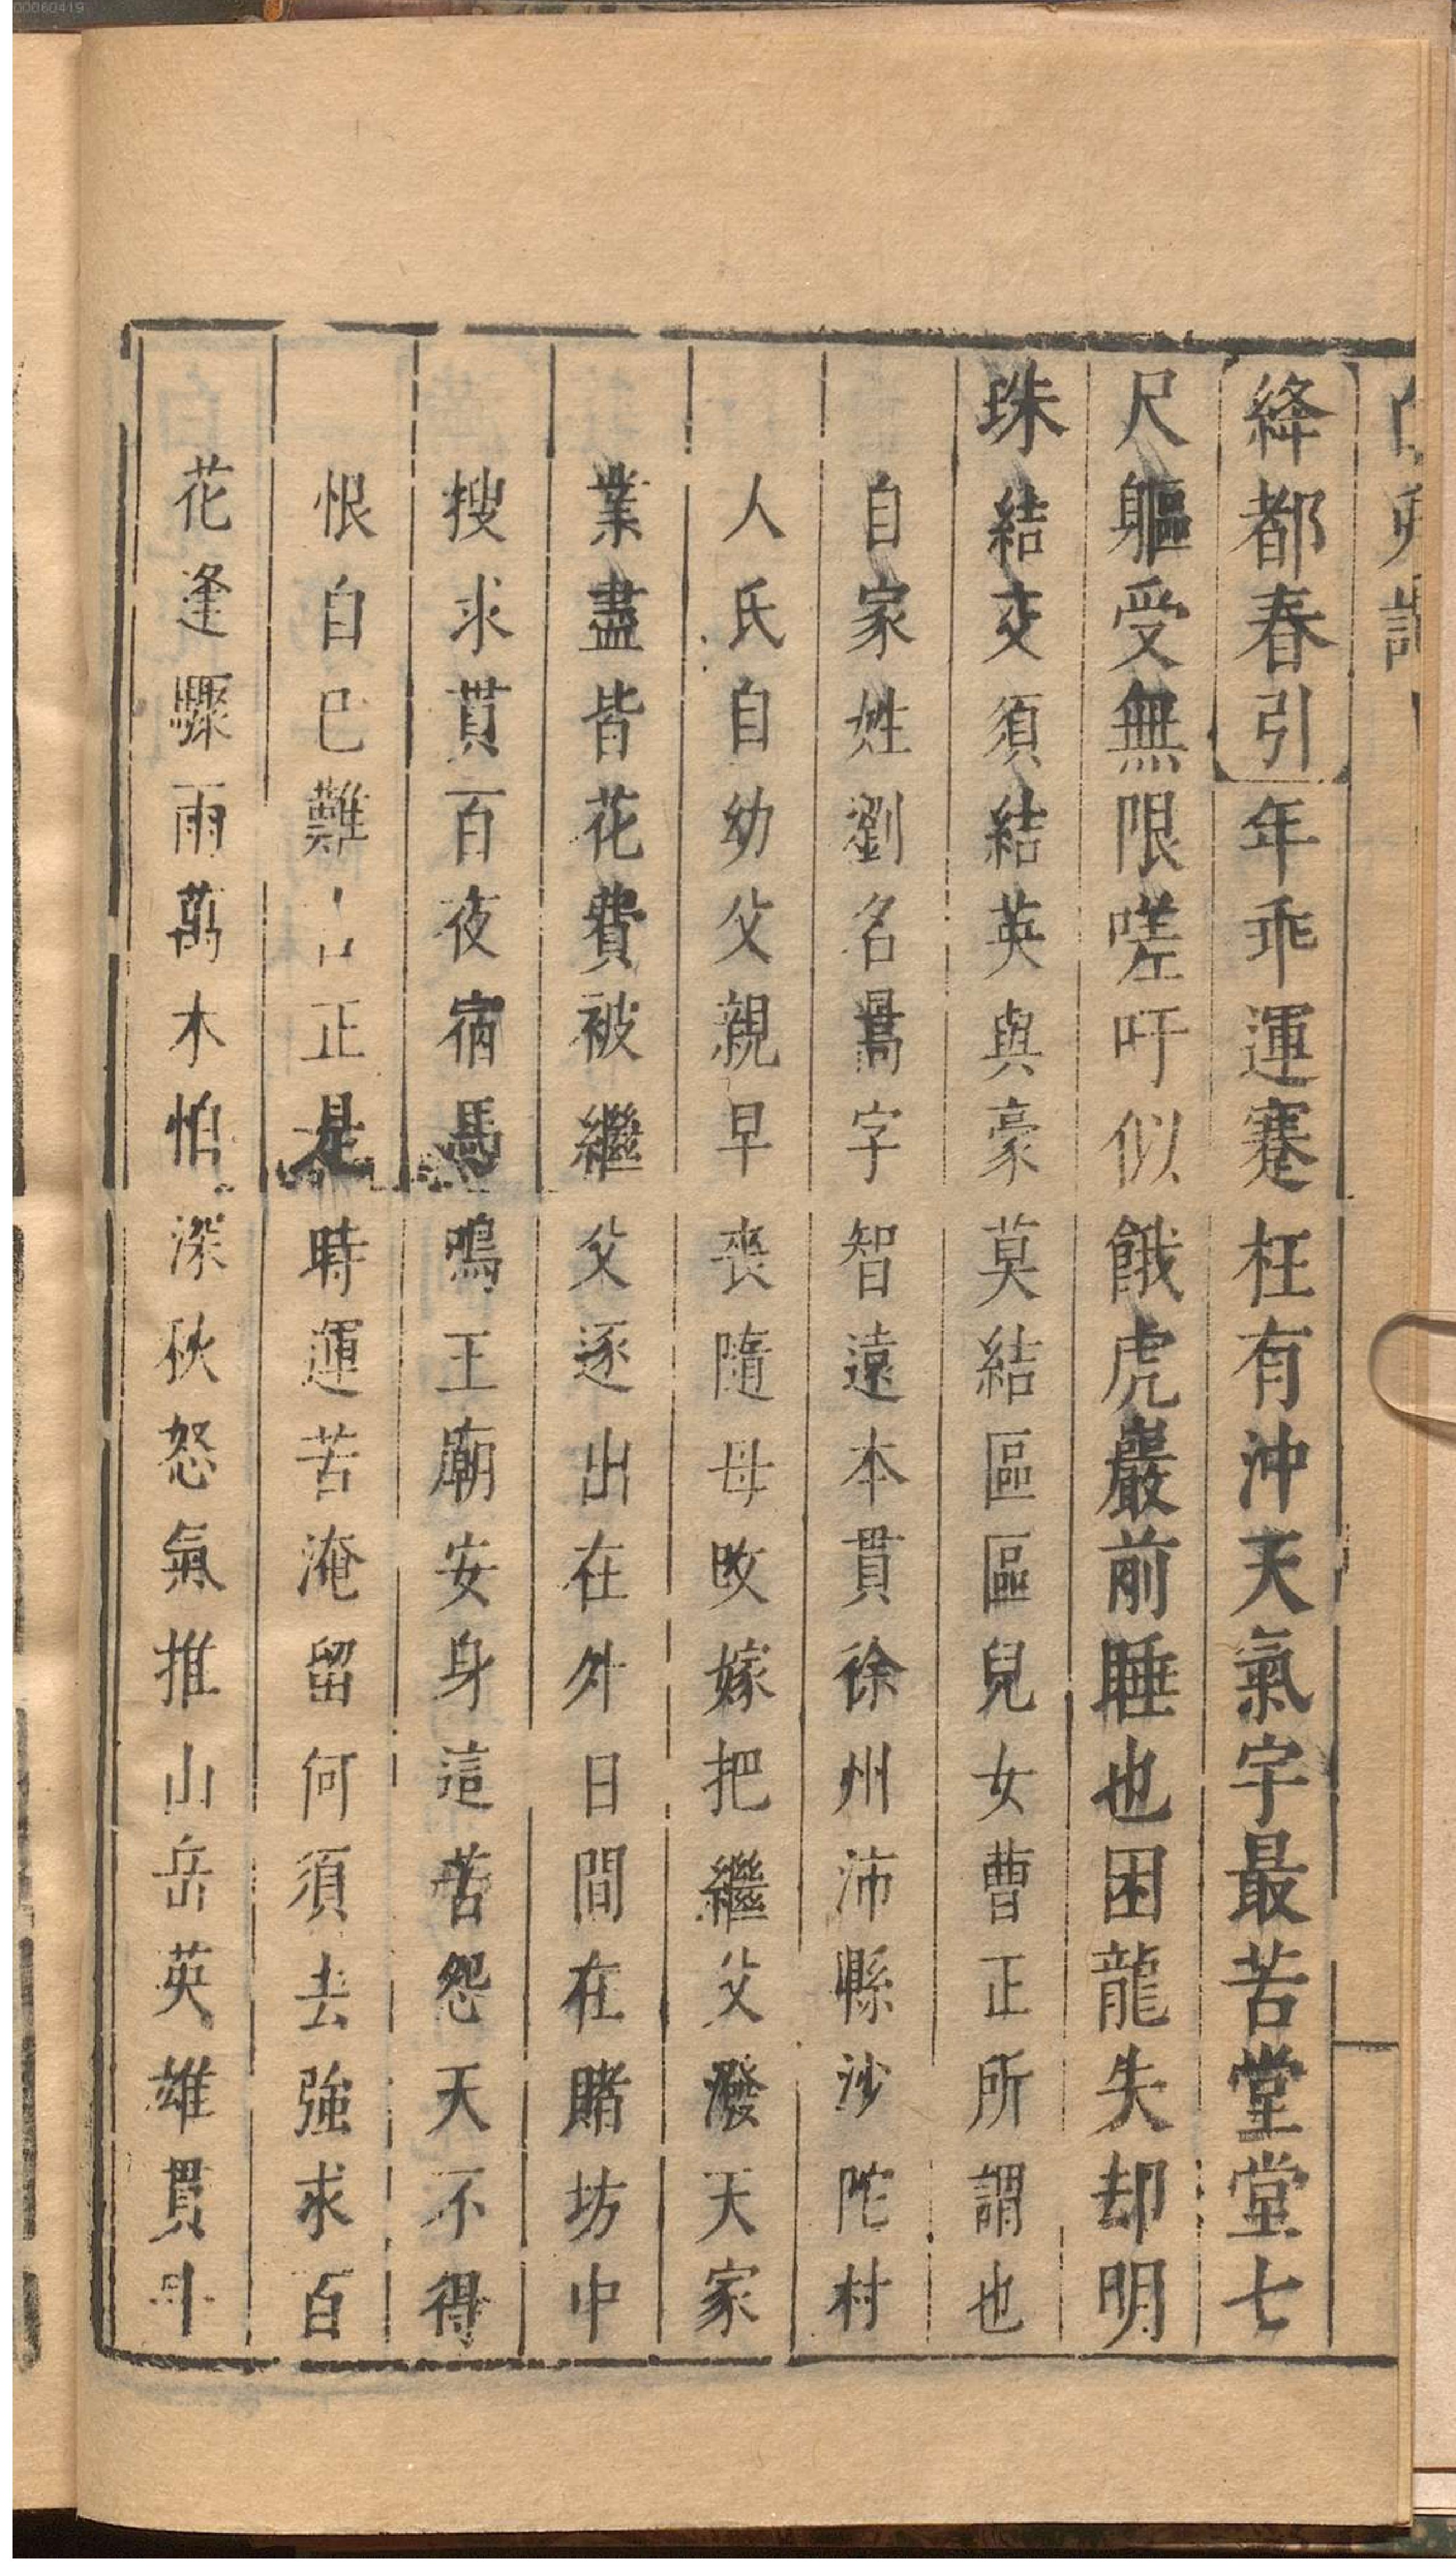 絳都春引年乖運蹇枉有沖天氣宇最苦堂堂七
尺軀受無限嗟吁似餓虎巖前睡也困龍失却明
珠結交須結英與豪莫結區區兒女曹正所謂也
自家姓劉名暠字智遠本貫徐州沛縣沙陀村
人氏自幼父親早喪隨母改嫁把繼父潑天家
業盡皆花費被繼父逐出在外日間在賭坊中
搜求貫百夜宿馬鳴王廟安身這苦怨天不得
恨自己難正是時運苦淹留何須去強求百
花逢驟雨萬木怕深秋怒氣推山岳英雄貫斗
00060419